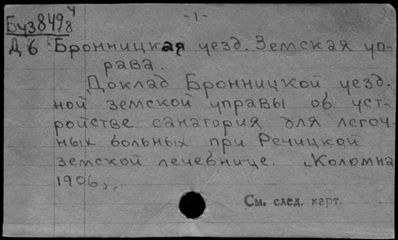 Буз8498 ч - 1 -
Д 6 Бронницкая уезд. Земская уп-
рава.
Доклад Бронницкой уезд.
ной земской управы об уст-
ройстве санатория для легоч-
ных больных при Речицкой
земской лечебнице. Коломна
1906,,
См. след. карт.